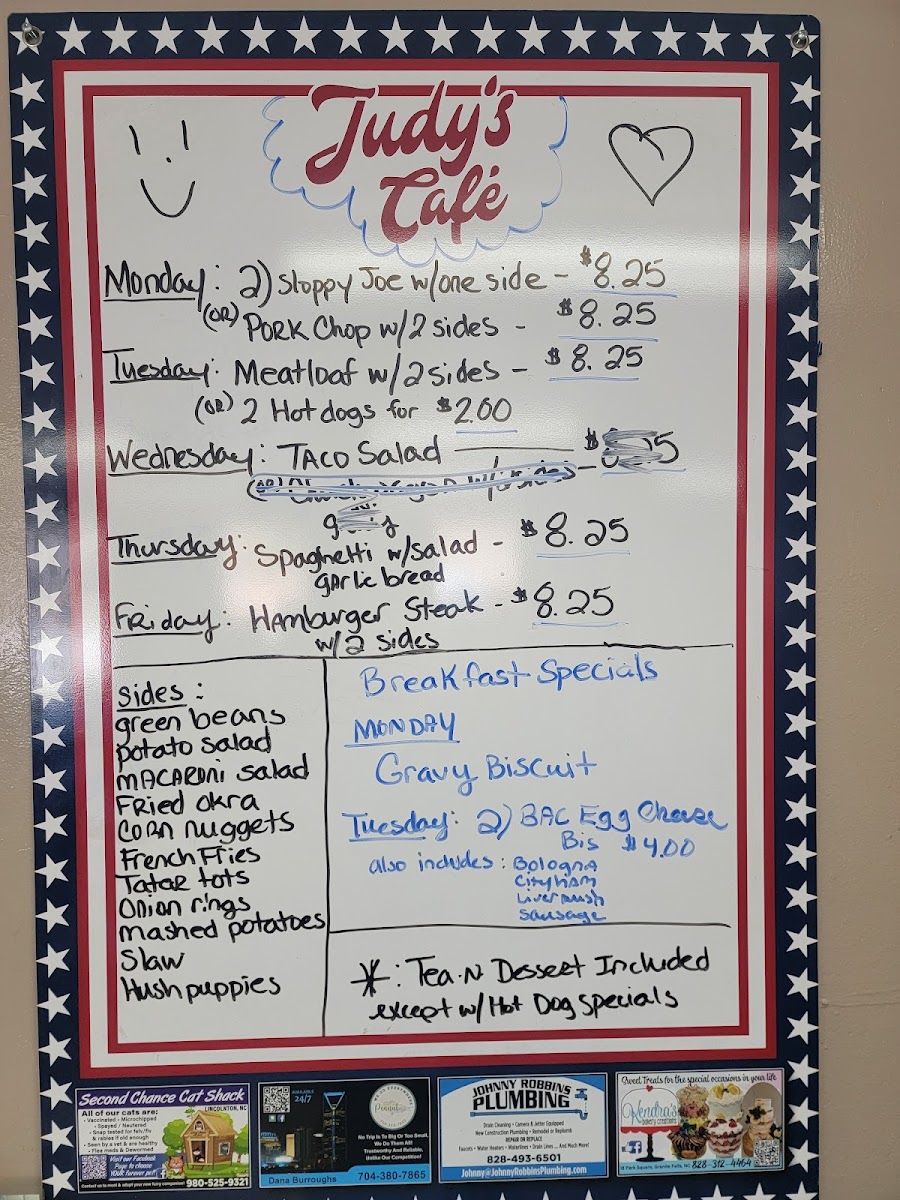 Judy's
Café
Monday: 2) Sloppy Joe w/one side - $8.25
(OR) Pork Chop w/2 sides - $8.25
Tuesday: Meatloaf w/2 sides - $8.25
(OR) 2 Hot dogs for $2.00
Wednesday: Taco Salad
Thursday: Spaghetti w/salad - $8.25
garlic bread
Friday: Hamburger Steak - $8.25
w/2 sides
Sides:
green beans
potato salad
macaroni salad
Fried okra
Corn nuggets
French Fries
Tatar tots
Onion rings
mashed potatoes
Slaw
Hushpuppies
Breakfast Specials
MONDAY
Gravy Biscuit
Tuesday: 2) BAC Egg Cheese
Bis $4.00
also includes: Bologna
City ham
Livermush
Sausage
*: Tea N Dessert Included
except w/ Hot Dog specials
Second Chance Cat Shack
LINCOLNTON, NC
All of our cats are:
• Vaccinated • Microchipped
• Spayed / Neutered
• Snap tested for felv/fiv
& rabies if old enough
• Seen by a vet & are healthy
• Flea meds & Dewormed
Visit our Facebook
Page to choose
YOUR furever pet!
980-525-9321
AVAILABLE
24/7
No Trip Is To Big Or Too Small,
We Do Them All!
Trustworthy And Reliable,
Unlike Our Competition!
Dana Burroughs
704-380-7865
JOHNNY ROBBINS
PLUMBING
Drain Cleaning • Camera & Jetter Equipped
New Construction Plumbing • Remodel or Replumb
REPAIR OR REPLACE
Faucets • Water Heaters • Waterlines • Drain Lines ... And Much More!
828-493-6501
Johnny@JohnnyRobbinsPlumbing.com
Sweet Treats for the special occasions in your life
Kendra's
Park Square, Granite Falls, NC 828-312-4464